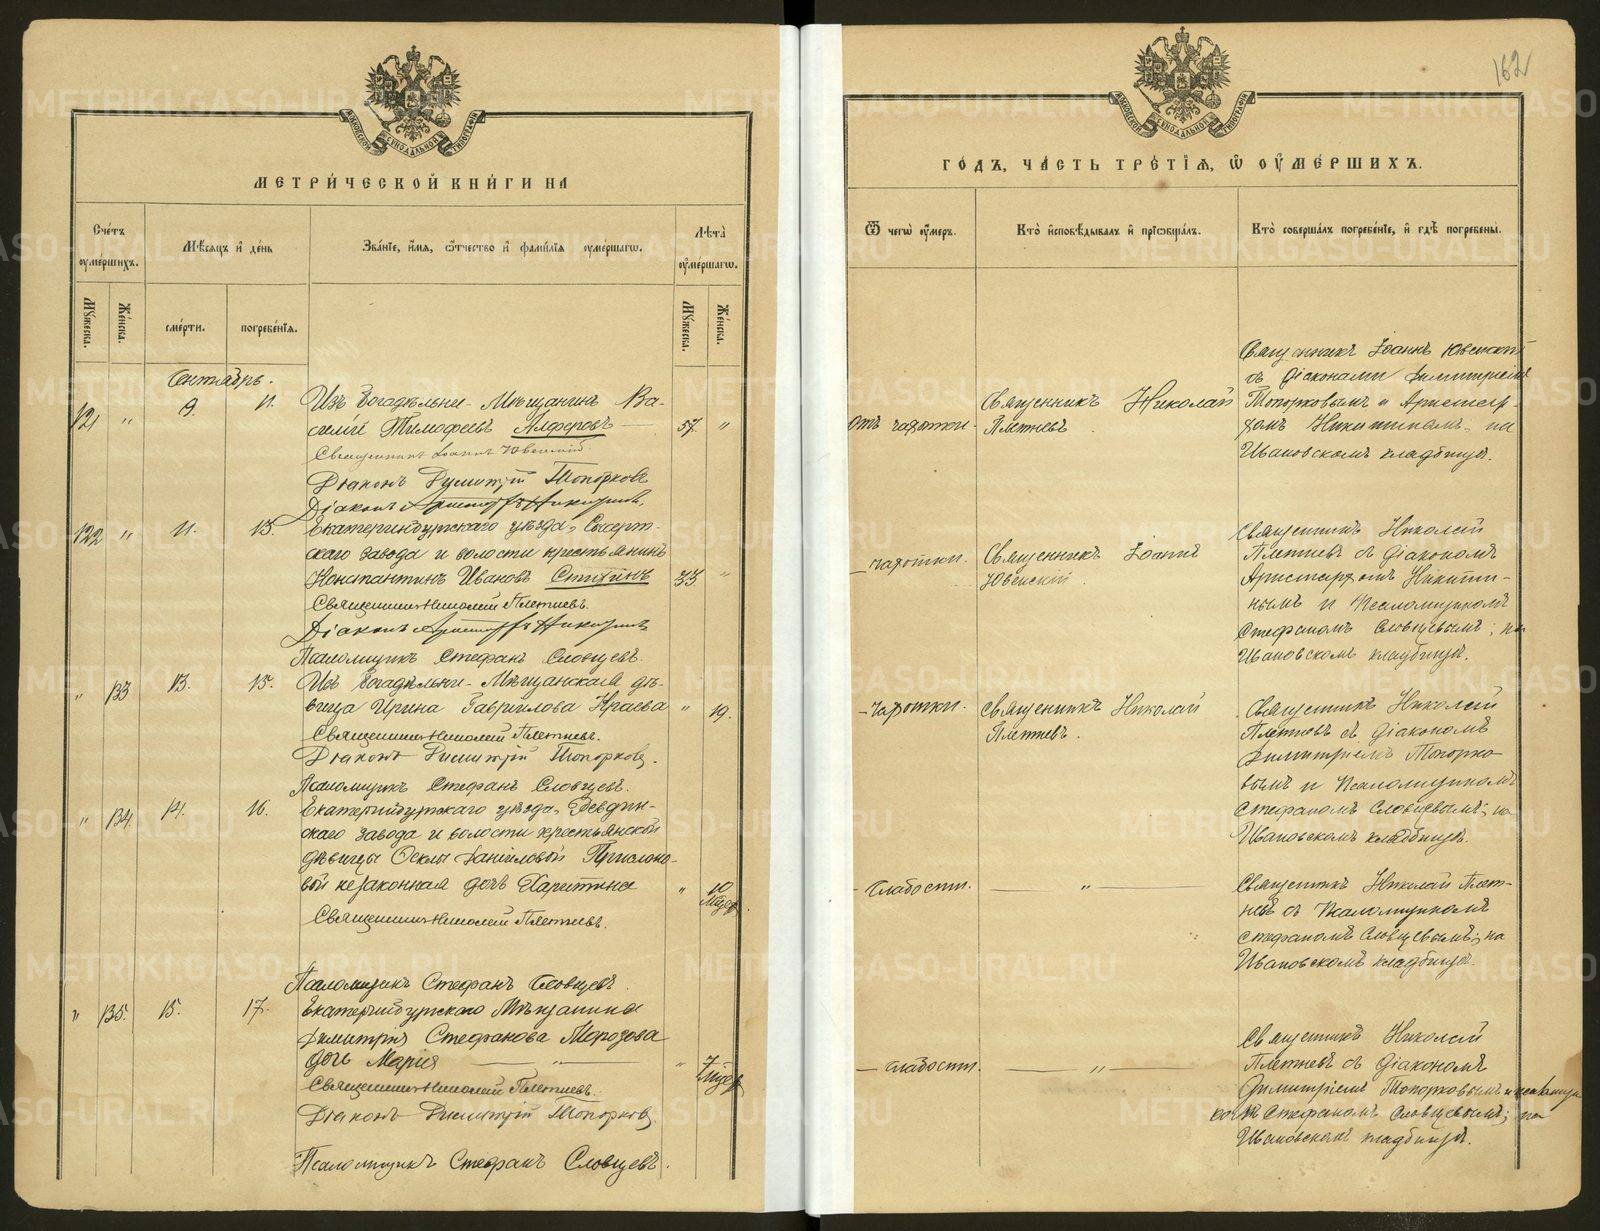 162
МЕТРИ́ЧЕСКОЙ КНИ́ГИ НА
Сче́тъ ѹме́ршихъ.
Мѣ́сѧцъ и҆ де́нь
Зва́нїе, и҆́мѧ, ѻ҆́тчество и҆ фами́лїѧ ѹме́ршагѡ.
Лѣ́та ѹ҆ме́ршагѡ.
Мꙋ́жеска.
Же́нска.
сме́рти.
погребе́нїѧ.
Мꙋ́жеска.
Же́нска.
Сентябрь.
121 " 9. 11. Изъ богадѣльни - Мѣщанинъ Ва-
силій Тимофеевъ Алферовъ — 57. "
Священникъ Іоаннъ Ювенскій
Діаконъ Димитрій Топорковъ
Діаконъ Аристархъ Никитинъ.
122 " 11. 13. Екатеринбургскаго уѣзда, Сысерт-
скаго завода и волости крестьянинъ
Константинъ Ивановъ Стихинъ 33 "
Священникъ Николай Плетневъ.
Діаконъ Аристархъ Никитинъ
Псаломщикъ Стефанъ Словцевъ.
" 133 13. 15. Изъ богадѣльни - Мѣщанская дѣ-
вица Ирина Гавриилова Краева " 19.
Священникъ Николай Плетневъ.
Діаконъ Димитрій Топорковъ.
Псаломщикъ Стефанъ Словцевъ.
" 134 14. 16. Екатеринбургскаго уѣзда, Ревдин-
скаго завода и волости крестьянской
дѣвицы Ѳеклы Даніиловой
незаконная дочь Харитина " 10
Священникъ Николай Плетневъ.
Псаломщикъ Стефанъ Словцевъ.
" 135. 15. 17. Екатеринбургскаго Мѣщанина
Димитрія Стефанова Морозова
дочь Марія — " — "
Священникъ Николай Плетневъ.
Діаконъ Димитрій Топорковъ.
Псаломщикъ Стефанъ Словцевъ.
ГО́ДЪ, ЧА́СТЬ ТРЕ́ТЇѦ, Ѡ҆ ОУ҆МЕ́РШИХЪ.
Ѿ чегѡ̀ ѹ҆́меръ.
Кто̀ и҆сповѣ́дывалъ и҆ прїѡбща́лъ.
Кто̀ соверша́лъ погребе́нїе, и҆ гдѣ̀ погребе́ны.
Отъ чахотки.
Священникъ Николай
Плетневъ.
Священникъ Іоаннъ Ювенскій
съ діаконами Димитріемъ
Топорковымъ и Аристар-
хомъ Никитинымъ: на
Ивановскомъ кладбищѣ.
— чахотки.
Священникъ Іоаннъ
Ювенскій.
Священникъ Николай
Плетневъ съ діакономъ
Аристархомъ Никити-
нымъ и Псаломщикомъ
Стефаномъ Словцевымъ; на
Ивановскомъ кладбищѣ.
— чахотки.
Священникъ Николай
Плетневъ.
Священникъ Николай
Плетневъ съ діакономъ
Димитріемъ Топорко-
вымъ и Псаломщикомъ
Стефаномъ Словцевымъ; на
Ивановскомъ кладбищѣ.
- слабости. — " —
Священникъ Николай Плет-
невъ съ Псаломщикомъ
Стефаномъ Словцевымъ; на
Ивановскомъ кладбищѣ.
— слабости. — " —
Священникъ Николай
Плетневъ съ діакономъ
Димитріемъ Топорковымъ и псаломщи-
комъ Стефаномъ Словцевымъ; на
Ивановскомъ кладбищѣ.
METRIKI.GASO-URAL.RU